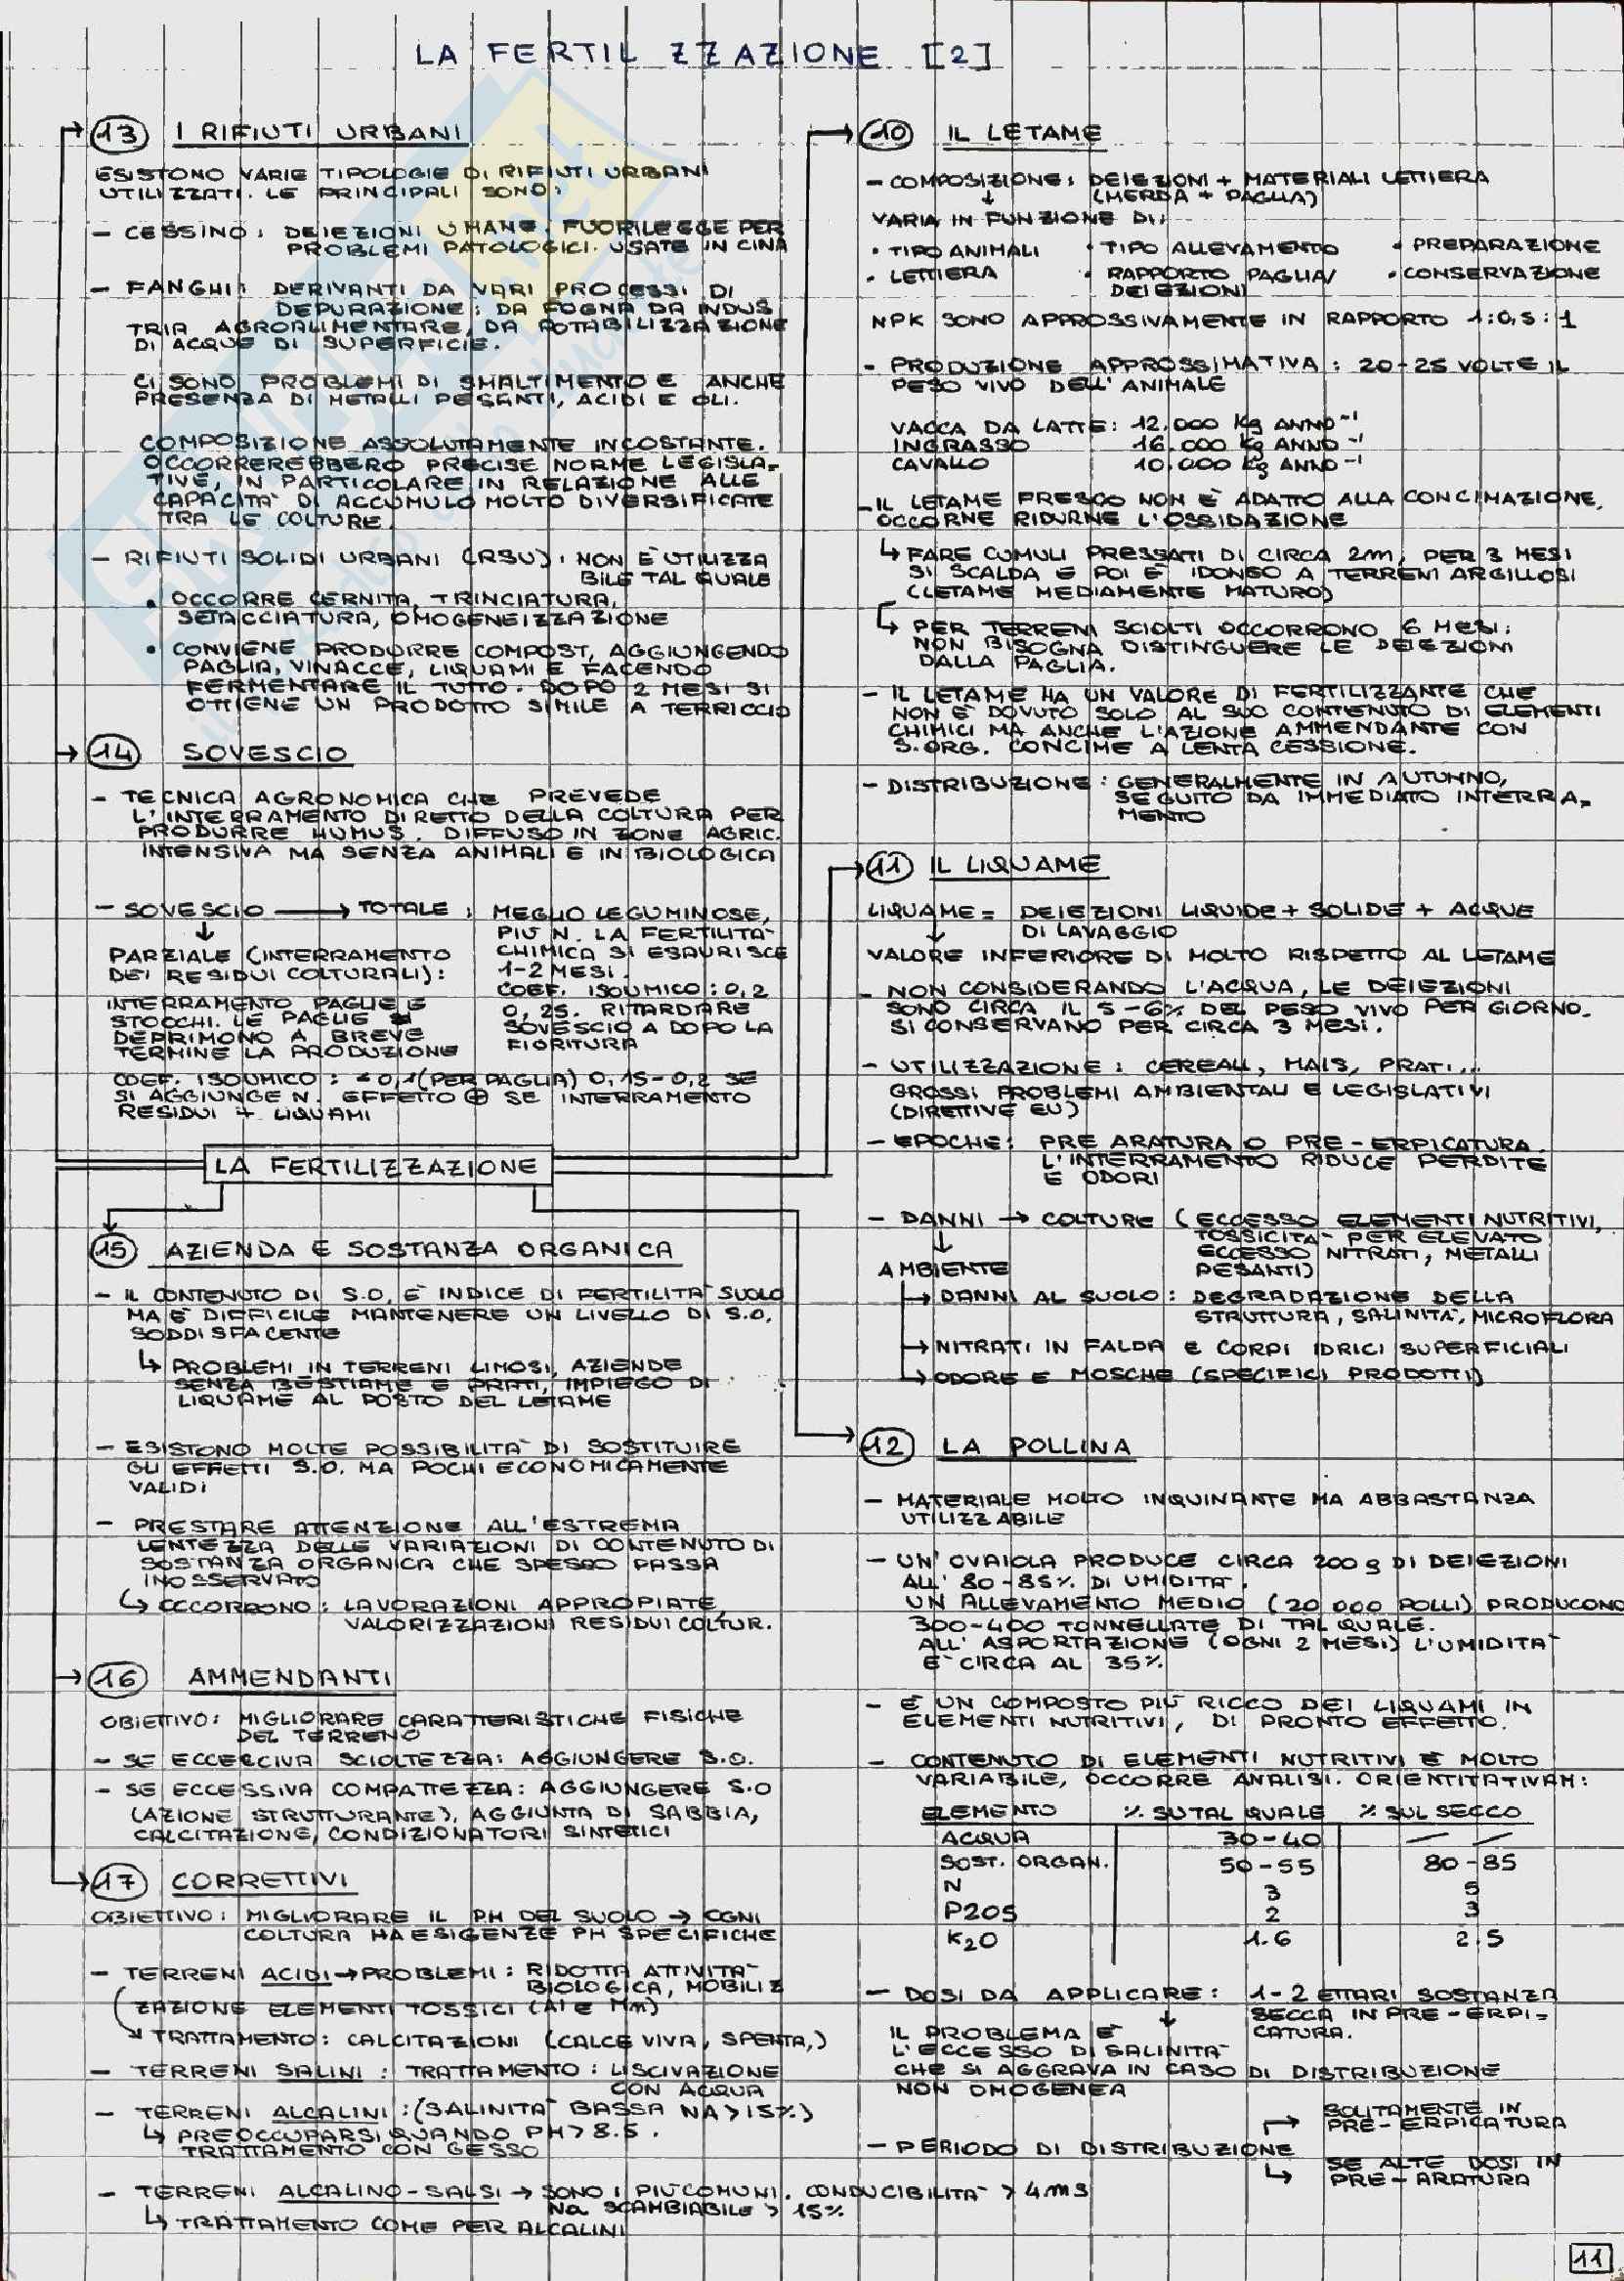 LA FERTILIZZAZIONE [2]
13 I RIFIUTI URBANI
ESISTONO VARIE TIPOLOGIE DI RIFIUTI URBANI
UTILIZZATI. LE PRINCIPALI SONO:
- CESSINO: DEIEZIONI UMANE. FUORILEGGE PER
PROBLEMI PATOLOGICI. USATE IN CINA
- FANGHI: DERIVANTI DA VARI PROCESSI DI
DEPURAZIONE: DA FOGNA DA INDUS
TRIA AGROALIMENTARE, DA POTABILIZZAZIONE
DI ACQUE DI SUPERFICIE.
CI SONO PROBLEMI DI SMALTIMENTO E ANCHE
PRESENZA DI METALLI PESANTI, ACIDI E OLI.
COMPOSIZIONE ASSOLUTAMENTE INCOSTANTE.
OCCORREREBBERO PRECISE NORME LEGISLA-
TIVE, IN PARTICOLARE IN RELAZIONE ALLE
CAPACITA' DI ACCUMULO MOLTO DIVERSIFICATE
TRA LE COLTURE.
- RIFIUTI SOLIDI URBANI (RSU): NON È UTILIZZA
BILE TAL QUALE
• OCCORRE CERNITA, TRINCIATURA,
SETACCIATURA, OMOGENEIZZAZIONE
• CONVIENE PRODURRE COMPOST, AGGIUNGENDO
PAGLIA, VINACCE, LIQUAMI E FACENDO
FERMENTARE IL TUTTO. DOPO 2 MESI SI
OTTIENE UN PRODOTTO SIMILE A TERRICCIO
14 SOVESCIO
- TECNICA AGRONOMICA CHE PREVEDE
L'INTERRAMENTO DIRETTO DELLA COLTURA PER
PRODURRE HUMUS. DIFFUSO IN ZONE AGRIC.
INTENSIVA MA SENZA ANIMALI E IN BIOLOGICA
- SOVESCIO → TOTALE: MEGLIO LEGUMINOSE,
PIÙ N. LA FERTILITA'
CHIMICA SI ESAURISCE
1-2 MESI.
COEF. ISOUMICO: 0,2
0,25. RITARDARE
SOVESCIO A DOPO LA
FIORITURA
↓
PARZIALE (INTERRAMENTO
DEI RESIDUI COLTURALI):
INTERRAMENTO PAGLIE E
STOCCHI. LE PAGLIE
DEPRIMONO A BREVE
TERMINE LA PRODUZIONE
COEF. ISOUMICO: <0,1 (PER PAGLIA) 0,15-0,2 SE
SI AGGIUNGE N. EFFETTO ⊕ SE INTERRAMENTO
RESIDUI + LIQUAMI
LA FERTILIZZAZIONE
15 AZIENDA E SOSTANZA ORGANICA
- IL CONTENUTO DI S.O. È INDICE DI FERTILITA' SUOLO
MA È DIFFICILE MANTENERE UN LIVELLO DI S.O.
SODDISFACENTE
↳ PROBLEMI IN TERRENI LIMOSI, AZIENDE
SENZA BESTIAME E PRATI, IMPIEGO DI
LIQUAME AL POSTO DEL LETAME
- ESISTONO MOLTE POSSIBILITA' DI SOSTITUIRE
GLI EFFETTI S.O. MA POCHI ECONOMICAMENTE
VALIDI
- PRESTARE ATTENZIONE ALL'ESTREMA
LENTEZZA DELLE VARIAZIONI DI CONTENUTO DI
SOSTANZA ORGANICA CHE SPESSO PASSA
INOSSERVATO
↳ OCCORRONO: LAVORAZIONI APPROPIATE,
VALORIZZAZIONI RESIDUI COLTUR.
16 AMMENDANTI
OBIETTIVO: MIGLIORARE CARATTERISTICHE FISICHE
DEL TERRENO
- SE ECCERCIVA SCIOLTEZZA: AGGIUNGERE S.O.
- SE ECCESSIVA COMPATTEZZA: AGGIUNGERE S.O
(AZIONE STRUTTURANTE), AGGIUNTA DI SABBIA,
CALCITAZIONE, CONDIZIONATORI SINTETICI
17 CORRETTIVI
OBIETTIVO: MIGLIORARE IL PH DEL SUOLO → OGNI
COLTURA HA ESIGENZE PH SPECIFICHE
- TERRENI ACIDI → PROBLEMI: RIDOTTA ATTIVITA'
BIOLOGICA, MOBILIZ
ZAZIONE ELEMENTI TOSSICI (Al e Mm)
↘ TRATTAMENTO: CALCITAZIONI (CALCE VIVA, SPENTA,)
- TERRENI SALINI: TRATTAMENTO: LISCIVAZIONE
CON ACQUA
- TERRENI ALCALINI: (SALINITA' BASSA NA > 15%)
↳ PREOCCUPARSI QUANDO PH > 8.5.
TRATTAMENTO CON GESSO
- TERRENI ALCALINO-SALSI → SONO I PIÙ COMUNI. CONDUCIBILITA' > 4mS
Na SCAMBIABILE > 15%
↳ TRATTAMENTO COME PER ALCALINI
10 IL LETAME
- COMPOSIZIONE: DEIEZIONI + MATERIALI LETTIERA
(MERDA + PAGLIA)
↓
VARIA IN FUNZIONE DI:
• TIPO ANIMALI • TIPO ALLEVAMENTO • PREPARAZIONE
• LETTIERA • RAPPORTO PAGLIA/ • CONSERVAZIONE
DEIEZIONI
NPK SONO APPROSSIVAMENTE IN RAPPORTO 1:0,5:1
- PRODUZIONE APPROSSIMATIVA: 20-25 VOLTE IL
PESO VIVO DELL'ANIMALE
VACCA DA LATTE: 12.000 Kg ANNO⁻¹
INGRASSO 16.000 Kg ANNO⁻¹
CAVALLO 10.000 Kg ANNO⁻¹
- IL LETAME FRESCO NON È ADATTO ALLA CONCIMAZIONE,
OCCORNE RIDURNE L'OSSIDAZIONE
↳ FARE CUMULI PRESSATI DI CIRCA 2m, PER 3 MESI
SI SCALDA E POI È IDONEO A TERRENI ARGILLOSI
(LETAME MEDIAMENTE MATURO)
↳ PER TERRENI SCIOLTI OCCORRONO 6 MESI:
NON BISOGNA DISTINGUERE LE DEIEZIONI
DALLA PAGLIA.
- IL LETAME HA UN VALORE DI FERTILIZZANTE CHE
NON È DOVUTO SOLO AL SUO CONTENUTO DI ELEMENTI
CHIMICI MA ANCHE L'AZIONE AMMENDANTE CON
S.ORG. CONCIME A LENTA CESSIONE.
- DISTRIBUZIONE: GENERALMENTE IN AUTUNNO,
SEGUITO DA IMMEDIATO INTERRA-
MENTO
11 IL LIQUAME
LIQUAME = DEIEZIONI LIQUIDE + SOLIDE + ACQUE
DI LAVAGGIO
↓
VALORE INFERIORE DI MOLTO RISPETTO AL LETAME
- NON CONSIDERANDO L'ACQUA, LE DEIEZIONI
SONO CIRCA IL 5-6% DEL PESO VIVO PER GIORNO.
SI CONSERVANO PER CIRCA 3 MESI.
- UTILIZZAZIONE: CEREALI, MAIS, PRATI...
GROSSI PROBLEMI AMBIENTALI E LEGISLATIVI
(DIRETTIVE EU)
- EPOCHE: PRE ARATURA O PRE-ERPICATURA.
L'INTERRAMENTO RIDUCE PERDITE
E ODORI
- DANNI → COLTURE (ECCESSO ELEMENTI NUTRITIVI,
TOSSICITA' PER ELEVATO
ECCESSO NITRATI, METALLI
PESANTI)
↓
AMBIENTE
→ DANNI AL SUOLO: DEGRADAZIONE DELLA
STRUTTURA, SALINITA', MICROFLORA
→ NITRATI IN FALDA E CORPI IDRICI SUPERFICIALI
→ ODORE E MOSCHE (SPECIFICI PRODOTTI)
12 LA POLLINA
- MATERIALE MOLTO INQUINANTE MA ABBASTANZA
UTILIZZABILE
- UN'OVAIOLA PRODUCE CIRCA 200 g DI DEIEZIONI
ALL'80-85% DI UMIDITA'.
UN ALLEVAMENTO MEDIO (20 000 POLLI) PRODUCONO
300-400 TONNELLATE DI TAL QUALE.
ALL'ASPORTAZIONE (OGNI 2 MESI) L'UMIDITA'
E' CIRCA AL 35%.
- È UN COMPOSTO PIÙ RICCO DEI LIQUAMI IN
ELEMENTI NUTRITIVI, DI PRONTO EFFETTO.
- CONTENUTO DI ELEMENTI NUTRITIVI È MOLTO
VARIABILE, OCCORRE ANALISI. ORIENTITATIVAM:
ELEMENTO % SU TAL QUALE % SUL SECCO
ACQUA 30-40 — —
SOST. ORGAN. 50-55 80-85
N 3 5
P2O5 2 3
K₂O 1.6 2.5
- DOSI DA APPLICARE: 1-2 ETTARI SOSTANZA
SECCA IN PRE-ERPI-
CATURA.
↓
IL PROBLEMA È
L'ECCESSO DI SALINITA'
CHE SI AGGRAVA IN CASO DI DISTRIBUZIONE
NON OMOGENEA
- PERIODO DI DISTRIBUZIONE
→ SOLITAMENTE IN
PRE-ERPICATURA
↳ SE ALTE DOSI IN
PRE-ARATURA
11